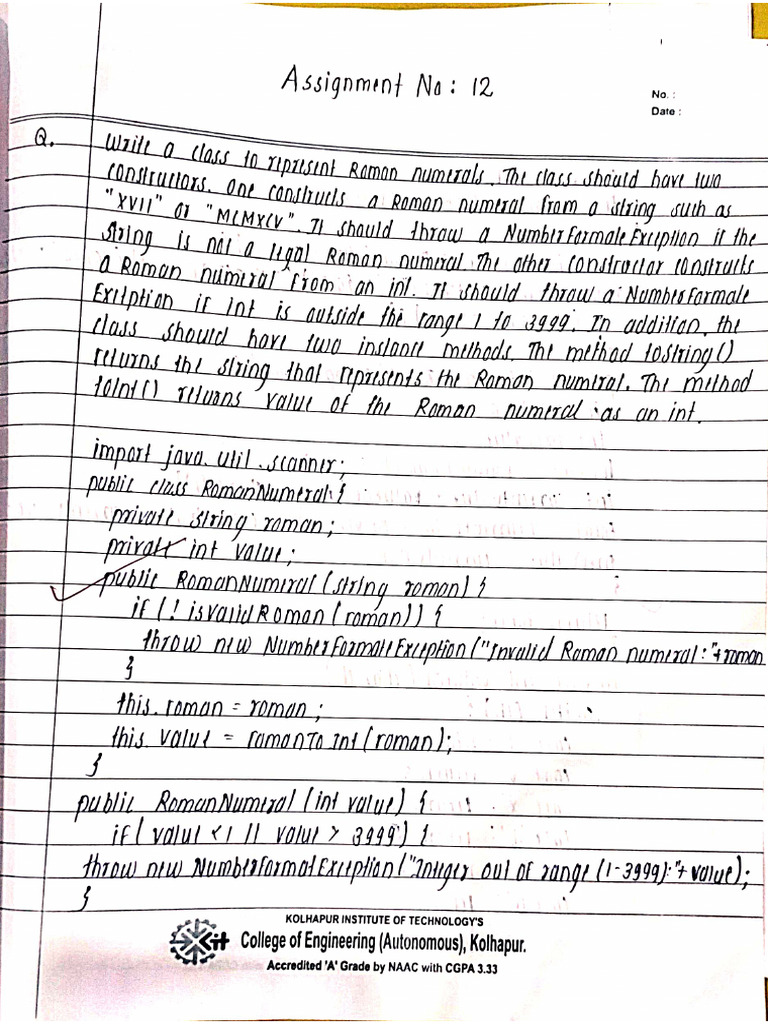 Assignment No: 12
No. :
Date :
Q. Write a class to represent Roman numerals. The class should have two
constructors. One constructs a Roman numeral from a string such as
"XVII" or "MCMXCV". It should throw a NumberFormateException if the
string is not a legal Roman numeral. The other constructor constructs
a Roman numeral from an int. It should throw a NumberFormate
Exception if int is outside the range 1 to 3999. In addition, the
class should have two instance methods. The method toString()
returns the string that represents the Roman numeral. The method
toInt() returns value of the Roman numeral as an int.
import java.util.scanner;
public class RomanNumeral {
private string roman;
private int value;
public RomanNumeral (string roman) {
if (! isValidRoman (roman)) {
throw new NumberFormateException ("Invalid Roman numeral:"+roman
}
this.roman = roman ;
this.value = romanToInt (roman);
}
public RomanNumeral (int value) {
if ( value < 1 || value > 3999) {
throw new NumberFormatException ("Integer out of range (1-3999):"+value);
}
KOLHAPUR INSTITUTE OF TECHNOLOGY'S
Kit College of Engineering (Autonomous), Kolhapur.
Accredited 'A' Grade by NAAC with CGPA 3.33